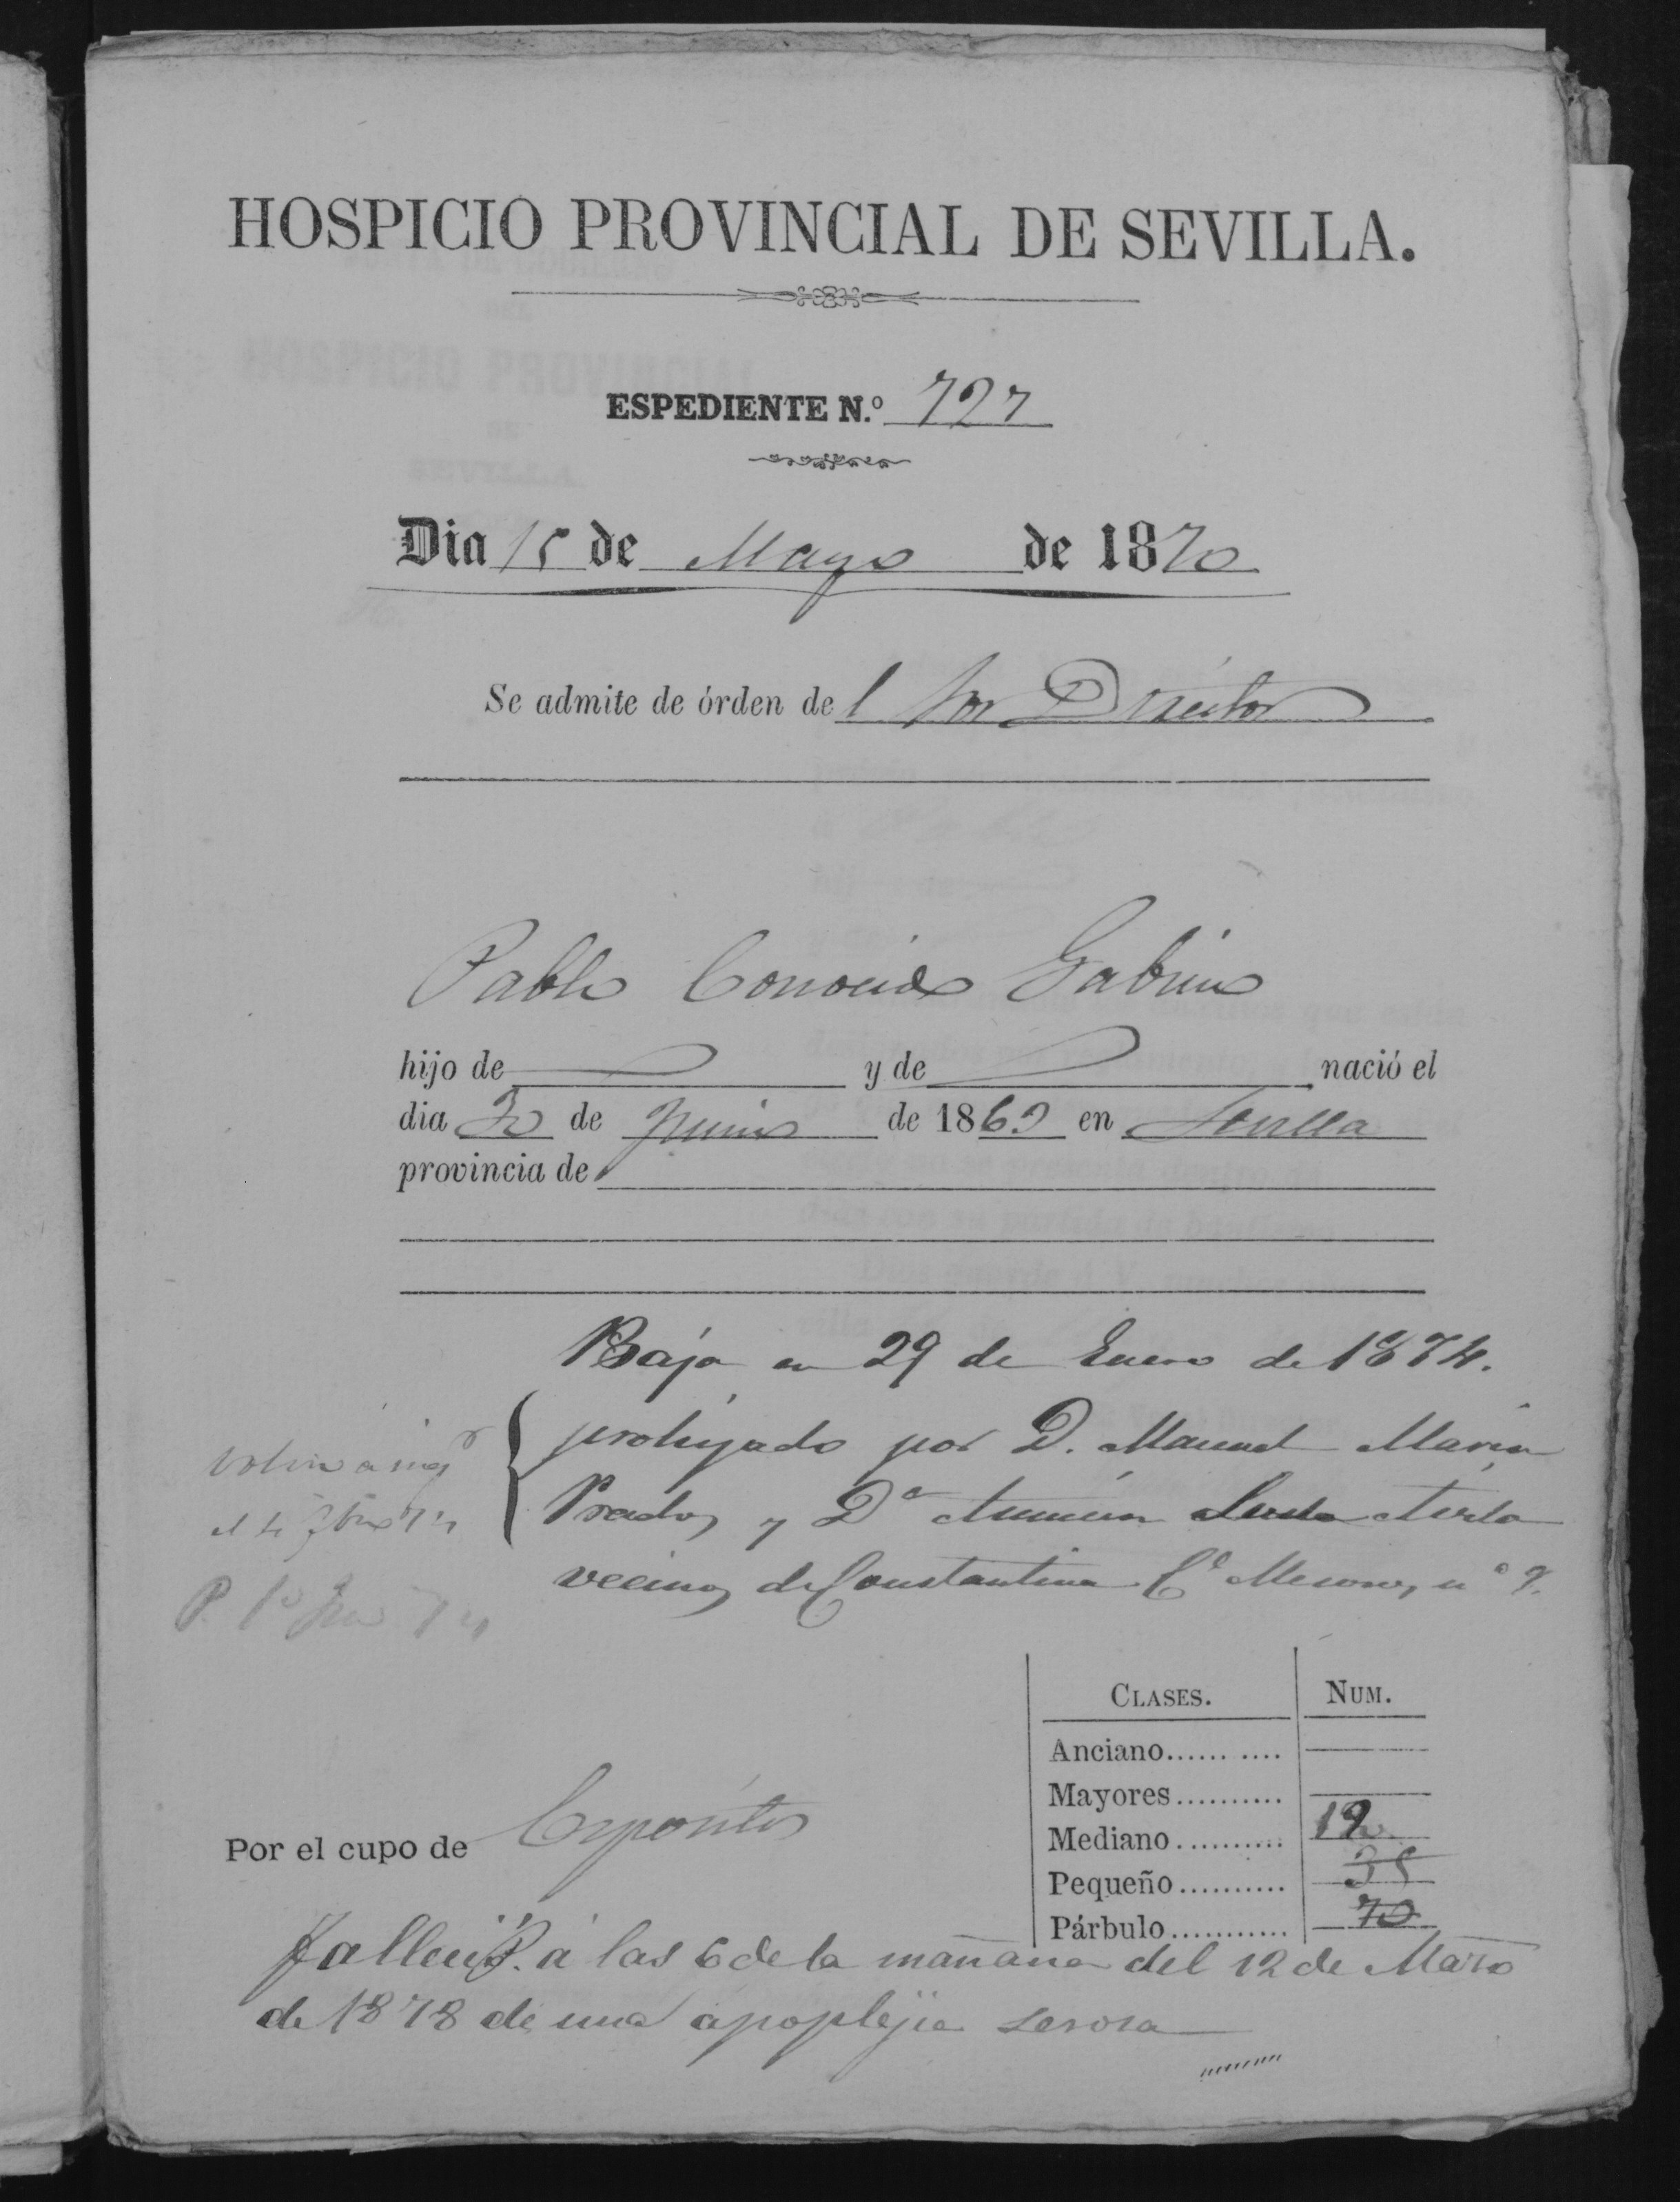 HOSPICIO PROVINCIAL DE SEVILLA.
ESPEDIENTE N.º 727
Dia 15 de Mayo de 1870
Se admite de órden del Sor Director
Pablo Conocido Gabino
hijo de y de nació el
dia 30 de Junio de 1869 en Sevilla
provincia de
Baja en 29 de Enero de 1874.
prohijado por D. Manuel Maria
Prados y Dª Asuncion
vecinos de Constantina Cª Mesones nº 7.
CLASES. NUM.
Anciano
Mayores
Mediano 19
Pequeño 35
Párbulo 70
Por el cupo de Expositos
Falleció á las 6 de la mañana del 12 de Marzo
de 1878 de una apoplejia serosa